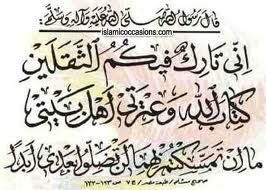 قال رسول الله صلى الله عليه وآله وسلم:
islamicoccasions.com
إني تارك فيكم الثقلين
كتاب الله وعترتي أهل بيتي
ما إن تمسكتم بهما لن تضلوا بعدي أبدا
صحيح مسلم / طبعة مصر / ج ٧ ص ١٢٢-١٢٣